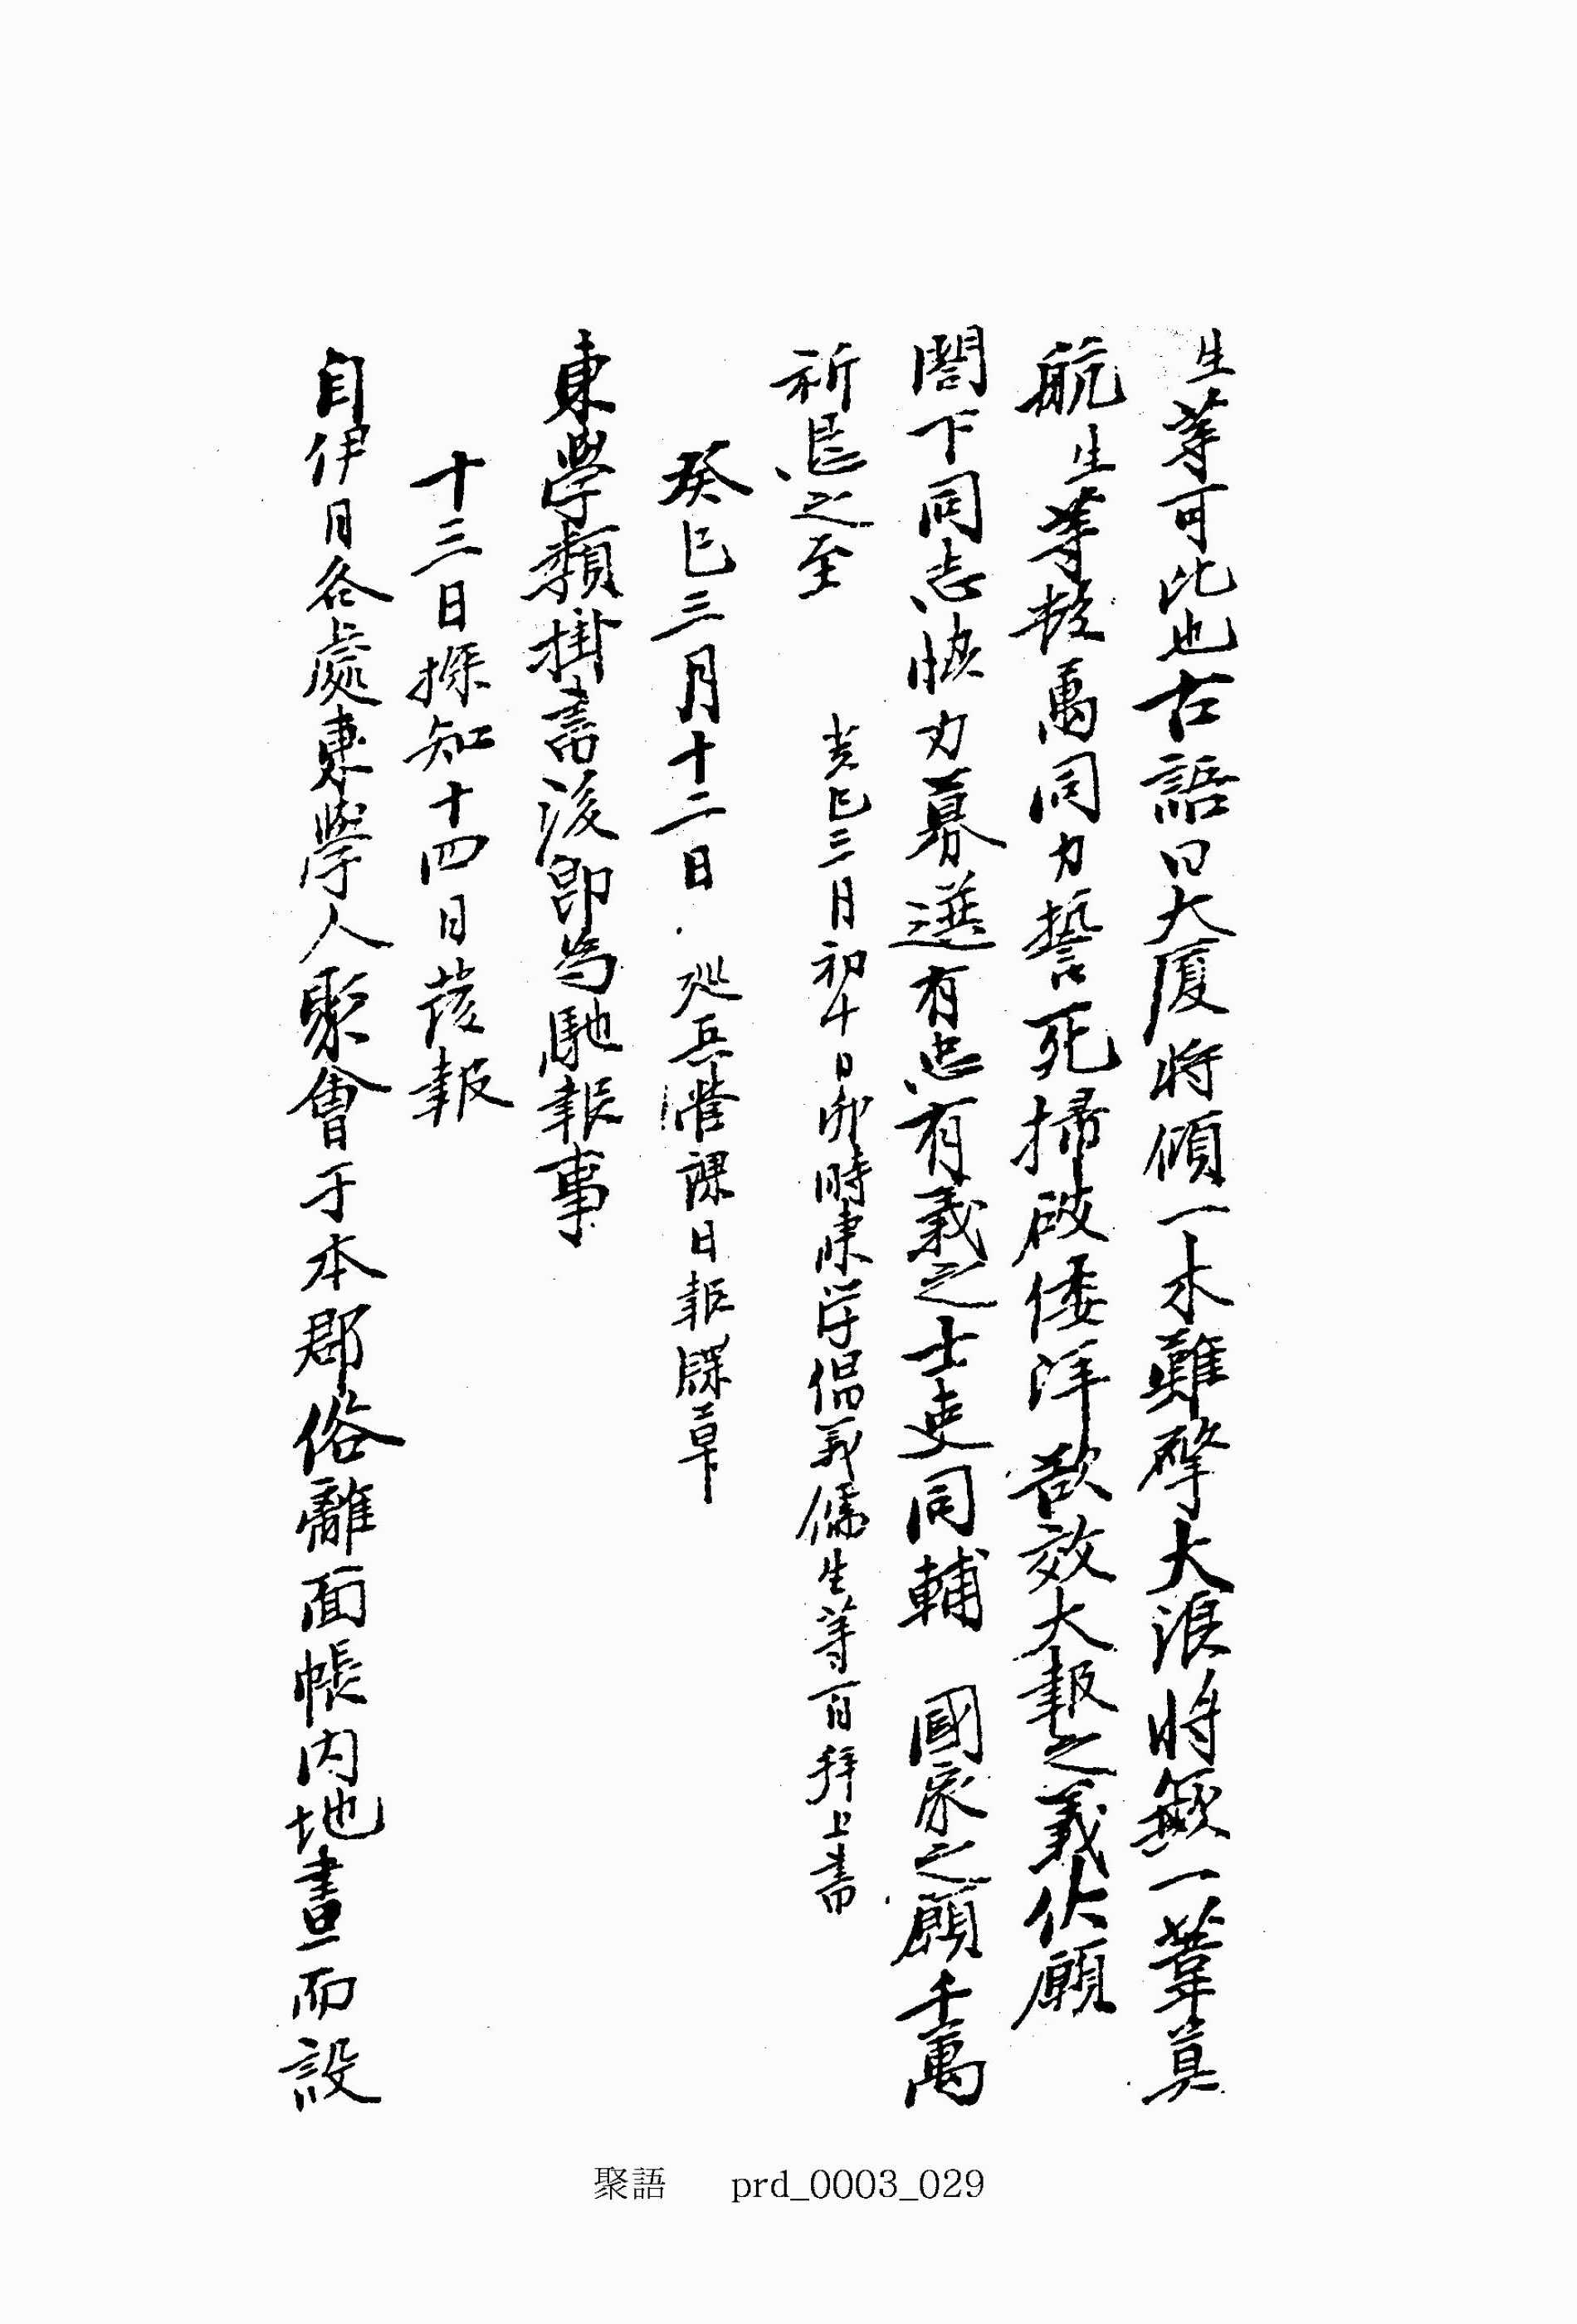 生等可比也古語曰大廈將傾一木難擎大浪將簸一葦莫
航生等數萬同力誓死掃破倭洋欲效大報之義伏願
閤下同志協力募選有忠有義之士吏同輔 國家之願千萬
祈恳之至 癸巳三月初十日卯時東學倡義儒生等百拜上書
癸巳三月十二日 巡兵營課日報牒草
東學類掛書後卽爲馳報事
十三日探知十四日發報
自伊月各處東學人聚會于本郡俗離面帳內地晝而設
聚語 prd_0003_029